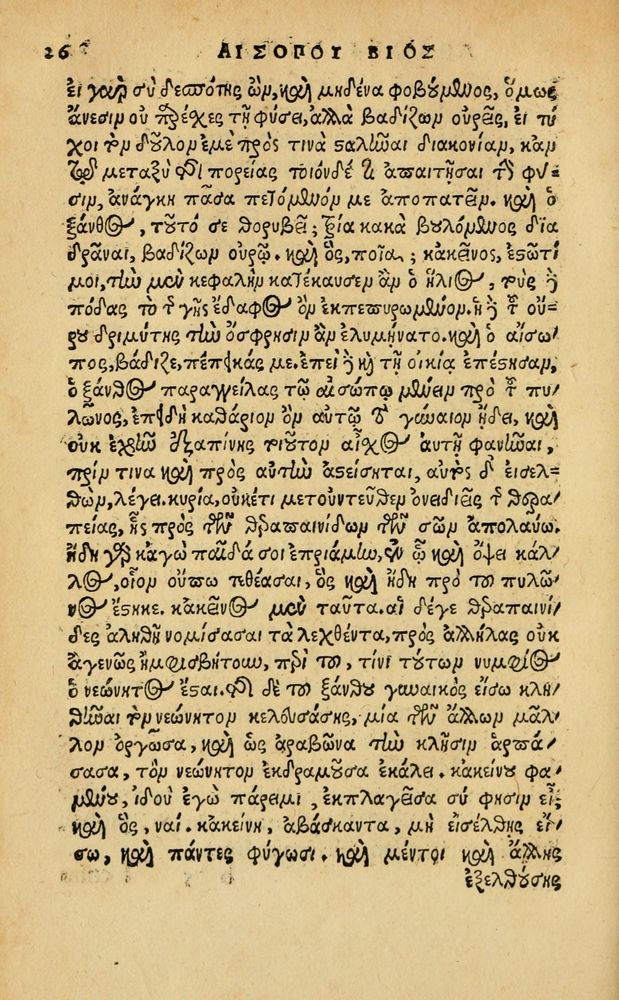 26 ΑΙΣΟΠΟΥ ΒΙΟΣ
εἰ γὰρ σὺ δεσπότης ὢν, καὶ μηδένα φοβούμενος, ὅμως
ἄνεσιν οὐ παρέχες τῇ φύσει, ἀλλὰ βαδίζων οὐρεῖς, εἰ τύ/
χοι τὸν δοῦλον ἐμὲ πρός τινα σταλῆναι διακονίαν, κἀν
τῷ μεταξὺ τῆς πορείας τοιόνδέ τι ἀπαιτῆσαι τὴν φύ/
σιν, ἀνάγκη πᾶσα πετόμενόν με ἀποπατεῖν. καὶ ὁ
ξάνθος, τοῦτό σε θορυβεῖ; τρία κακὰ βουλόμενος δια
δρᾶναι, βαδίζων οὐρῶ. καὶ ὃς, ποῖα; κἀκεῖνος, ἑστῶτί
μοι, τὴν μὲν κεφαλὴν κατέκαυσεν ἂν ὁ ἥλιος, τοὺς δὲ
πόδας τὸ τῆς γῆς ἔδαφος ὂν ἐκπεπυρωμένον. ἡ δὲ τοῦ οὔ/
ρου δριμύτης τὴν ὄσφρησιν ἂν ἐλυμήνατο. καὶ ὁ αἴσω/
πος, βάδιζε, πέπεικάς με. ἐπεὶ δὲ καὶ τῇ οἰκίᾳ ἐπέστησαν,
ὁ ξάνθος παραγγείλας τῷ αἰσώπῳ μένειν πρὸ τοῦ πυ/
λῶνος, ἐπειδὴ καθάριον ὂν αὐτῷ τὸ γύναιον ᾔδει, καὶ
οὐκ ἐχρῆν ἐξαπίνης τοιοῦτον αἶσχος αὐτῇ φανῆναι,
πρίν τινα καὶ πρὸς αὐτὴν ἀστείσηται, αὐτὸς δ' εἰσελ=
θὼν, λέγει. κυρία, οὐκέτι μετουντεῦθεν ὀνειδιεῖς τῆς θερα/
πείας, ἧς πρὸς τῶν θεραπαινίδων τῶν σῶν ἀπολαύω.
ἤδη γὰρ κἀγὼ παῖδά σοι ἐπριάμην, ἐν ᾧ καὶ ὄψει κάλ/
λος, οἷον οὔπω τεθέασαι, ὃς καὶ ἤδη πρὸ τοῦ πυλῶ/
νος ἕστηκε. κἀκεῖνος μὲν ταῦτα. αἱ δέγε θεραπαινί/
δες ἀληθῆ νομίσασαι τὰ λεχθέντα, πρὸς ἀλλήλας οὐκ
ἀγενῶς ἠμφισβήτουν, περὶ τοῦ, τίνι τούτων νυμφίος
ὁ νεώνητος ἔσται. τῆς δὲ τοῦ ξάνθου γυναικὸς εἴσω κλη/
θῆναι τὸν νεώνητον κελευσάσης, μία τῶν ἄλλων μᾶλ/
λον ὀργῶσα, καὶ ὡς ἀραβῶνα τὴν κλῆσιν ἁρπά/
σασα, τὸν νεώνητον ἐκδραμοῦσα ἐκάλει. κἀκείνου φα/
μένου, ἰδοὺ ἐγὼ πάρειμι, ἐκπλαγεῖσα σύ φησιν εἶ;
καὶ ὃς, ναί. κἀκείνη, ἀβάσκαντα, μὴ εἰσέλθῃς εἴ/
σω, καὶ πάντες φύγωσι. καὶ μέντοι καὶ ἄλλης
ἐξελθούσης